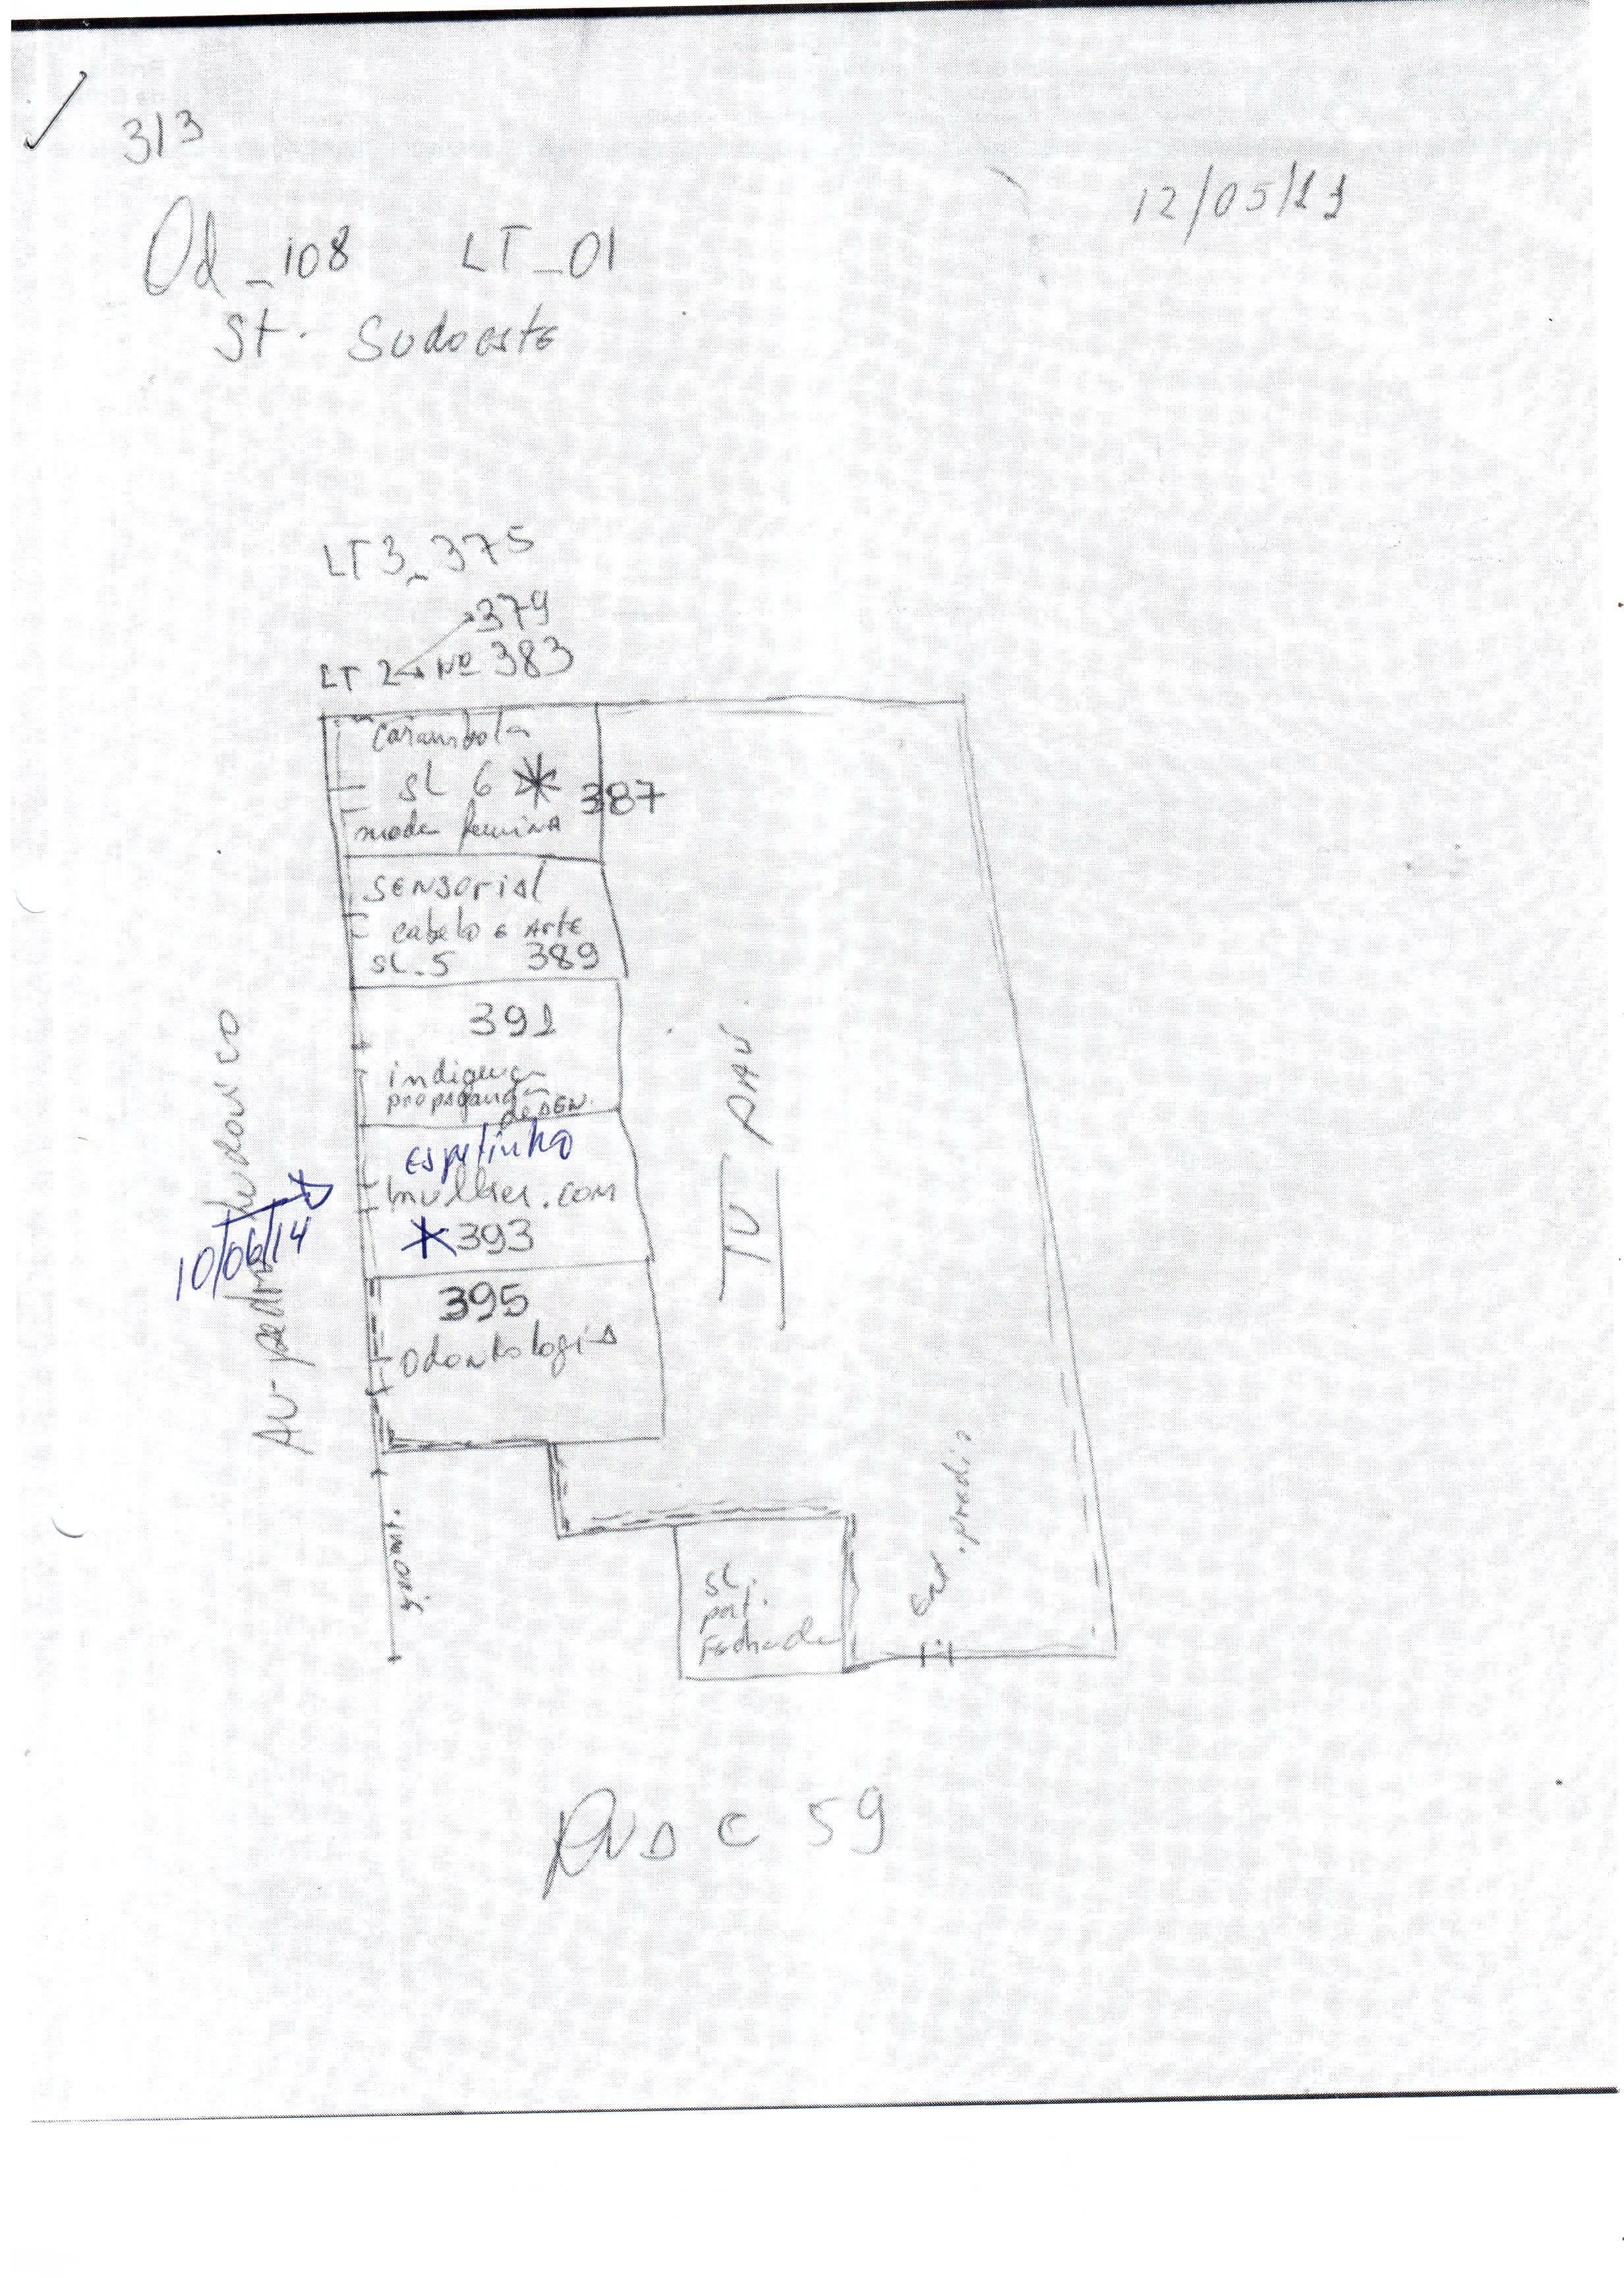 313
12/05/11
Qd_108 LT_01
St. Sudoeste
LT3_375
379
LT 2 Nº 383
Carambola
SL 6 387
moda feminA
SENSoriAl
cabelo e ArtE
SL.5 389
391
indigena
propaganda
Espetinho
mulher.com
393
10/06/14
395
OdontologiA
Av. pedro Ludovico
IV PAV
SL.
port.
Fechada
Ent. predio
RUA C 59